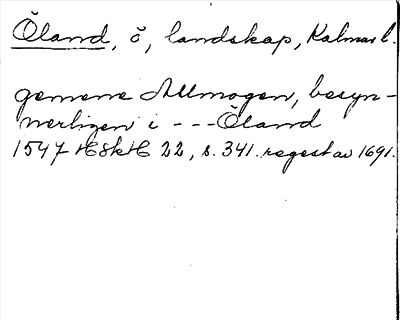 Öland, ö, landskap, Kalmar l.
gemene Allmogen, besyn-
nerligen i - - - Öland
1547 HSkH 22, s. 341. regest av 1691.